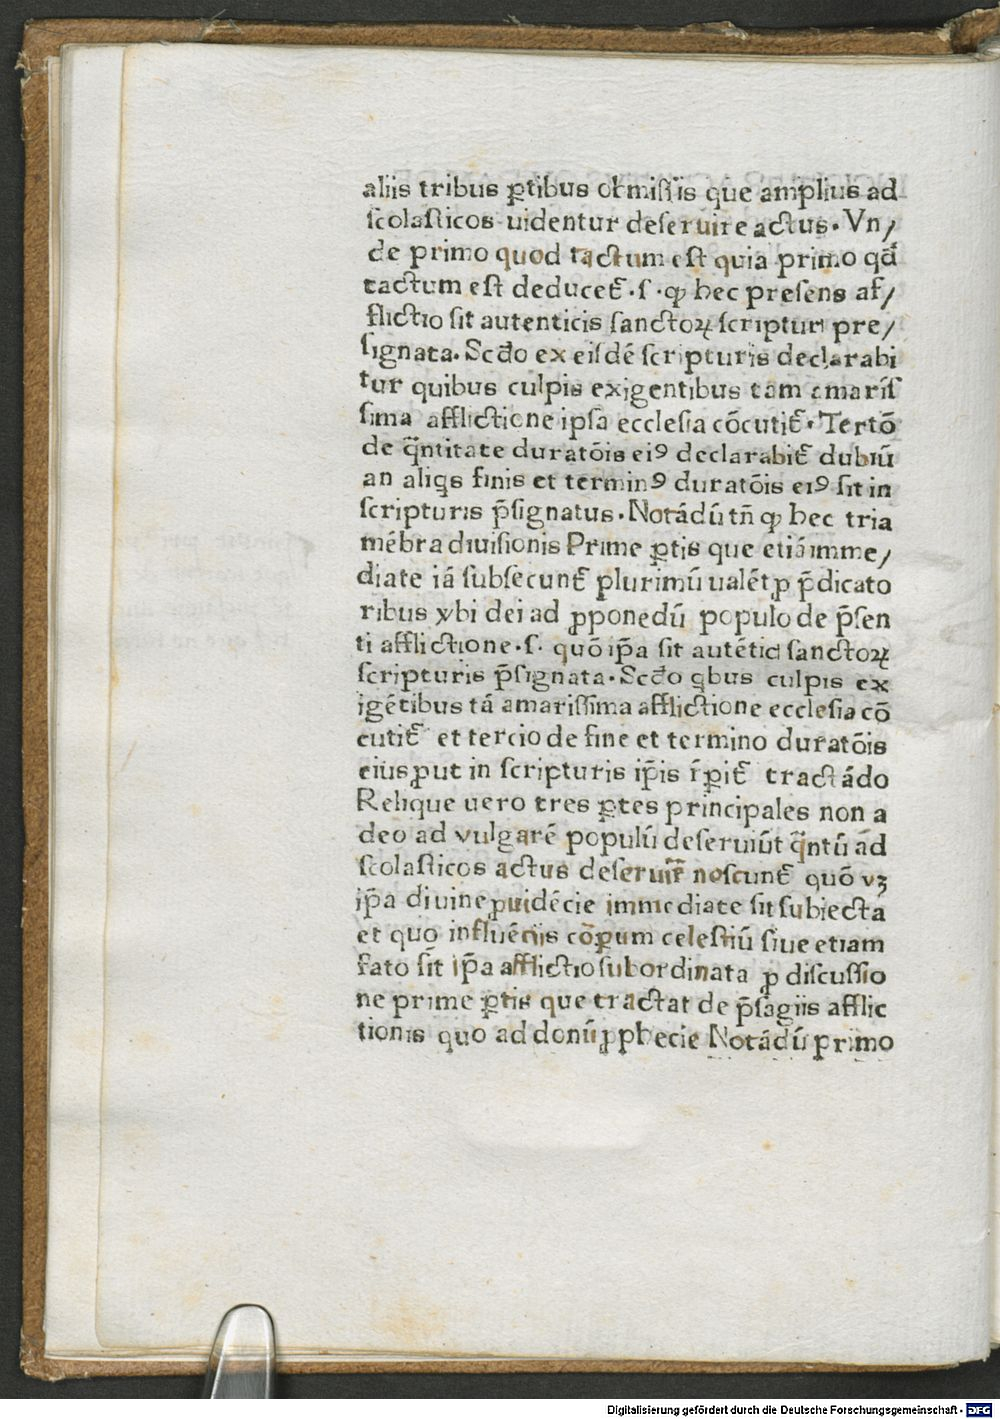 aliis tribus ꝑtibus obmissis que amplius ad
scolasticos uidentur deseruire actus. Vn/
de primo quod tactum est quia primo qđ
tactum est deducet̄ .s. ꝙ hec presens af/
flictio sit autenticis sanctoꝝ scripturis pre/
signata. Scđo ex eisdē scripturis declarabi
tur quibus culpis exigentibus tam amaris
sima afflictione ipsa ecclesia cōcutit̄. Tertō
de q̄ntitate duratōis eiꝰ declarabit̄ dubiū
an aliqs finis et terminꝰ duratōis eiꝰ sit in
scripturis p̄signatus. Notādū tn̄ ꝙ hec tria
mēbra diuisionis Prime ꝑtis que etiā imme/
diate iā subsecunt̄ plurimū ualēt ꝓ p̄dicato
ribus v̓bi dei ad ꝓponedū populo de p̄sen
ti afflictione .s. quō ip̄a sit autētic sanctoꝝ
scripturis p̄signata. Scđo qbus culpis ex
igētibus tā amarissima afflictione ecclesia cō
cutit̄ et tercio de fine et termino duratōis
eius ꝓut in scripturis ip̄is r̄ꝑit̄ tractādo
Relique uero tres ꝑtes principales non a
deo ad vulgarē populū deseruiūt q̄ntū ad
scolasticos actus deseruir̄ noscunt̄ quō vꝫ
ip̄a diuine ꝓuidēcie immediate sit subiecta
et quo influēciis cōꝑum celestiū siue etiam
fato sit ip̄a afflictio subordinata ꝓ discussio
ne prime ꝑtis que tractat de p̄sagiis afflic
tionis quo ad donū ꝓphecie Notādū primo
Digitalisierung gefördert durch die Deutsche Forschungsgemeinschaft - DFG